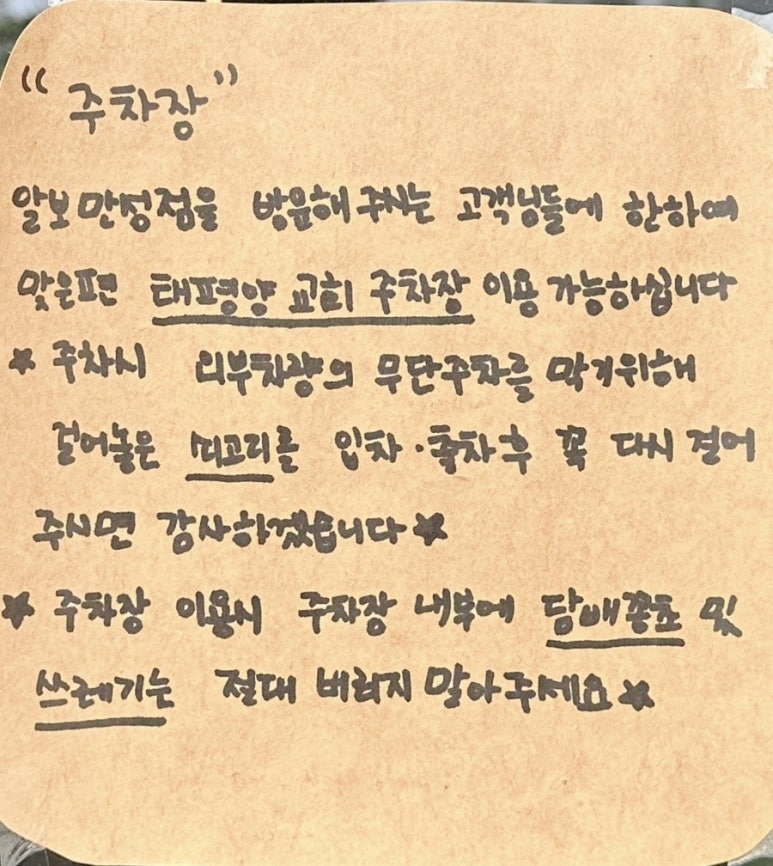 "주차장"
알보 만성점을 방문해 주시는 고객님들에 한하여
맞은편 태평양 교회 주차장 이용 가능하십니다
★ 주차시 외부차량의 무단주차를 막기위해
걸어놓은 쇠고리를 입차·출차후 꼭 다시 걸어
주시면 감사하겠습니다★
★ 주차장 이용시 주차장 내부에 담배꽁초 및
쓰레기는 절대 버리지 말아주세요★